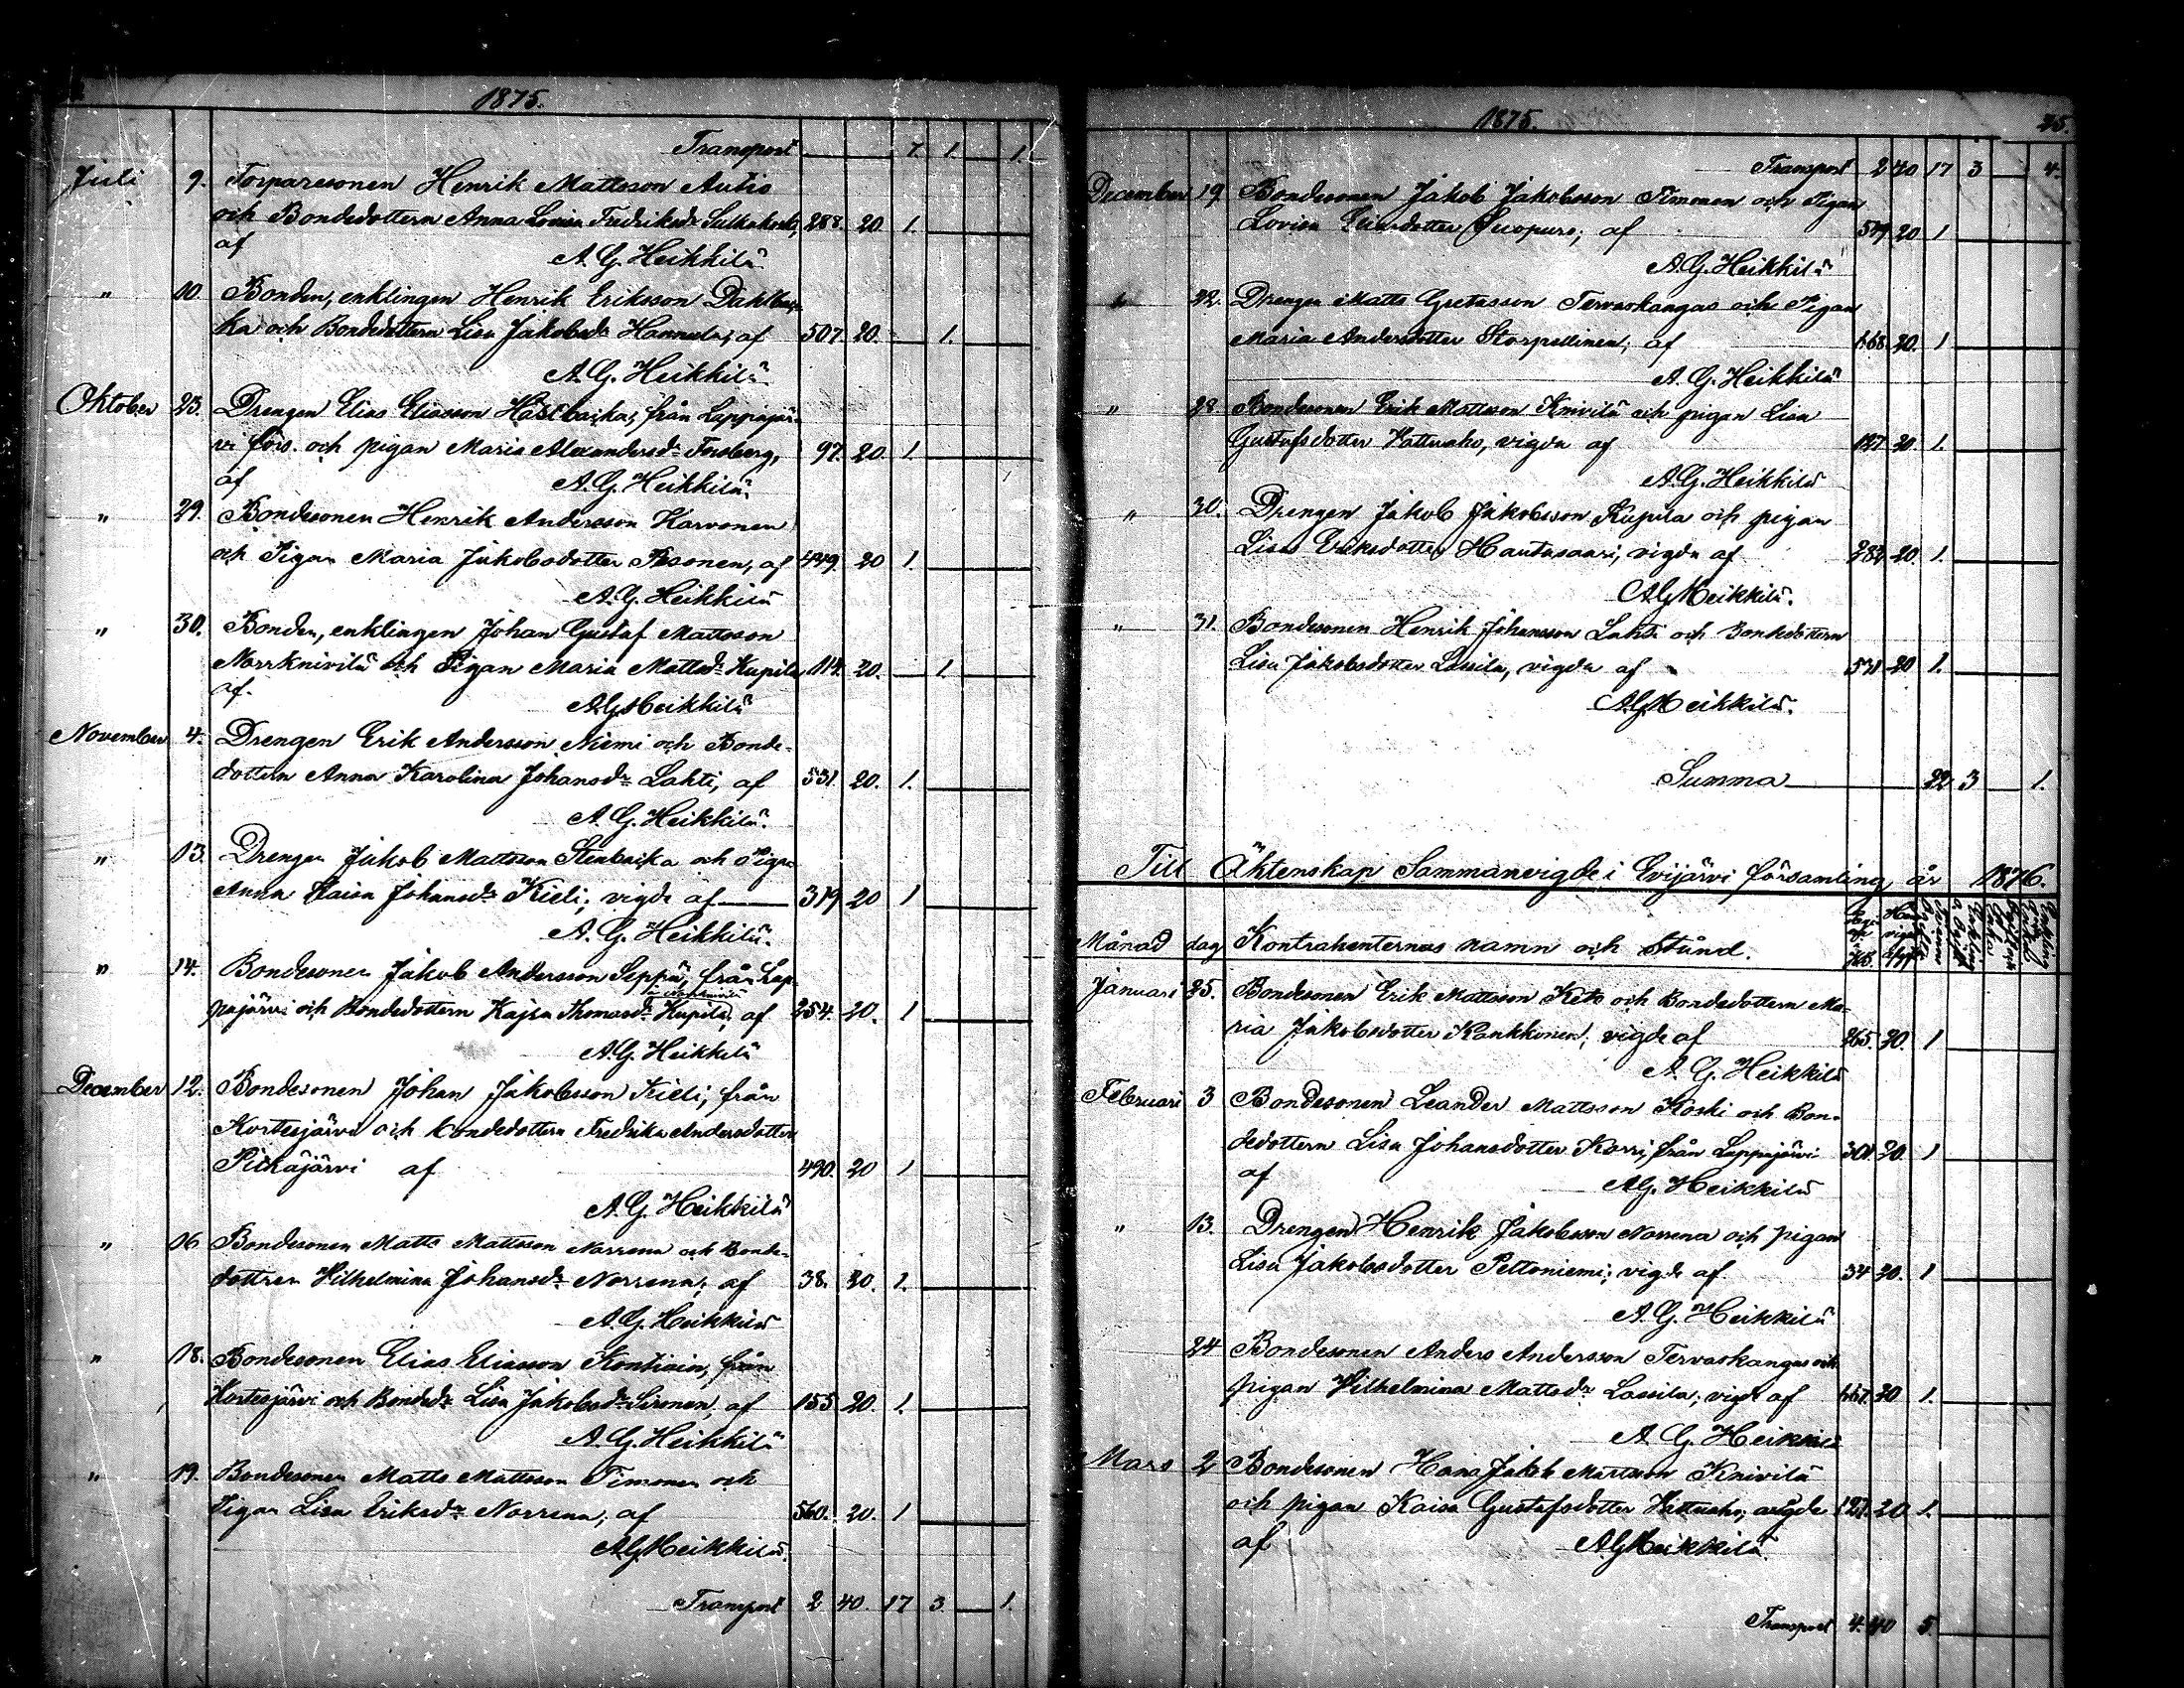 1875.
Transport 7. 1. 1.
Juli 9. Torparesonen Henrik Mattsson Autio
och Bondedottern Anna Lovisa Fredriksdr 288. 20. 1.
af A. G. Heikkilä
" 10. Bonden, enklingen Henrik Eriksson Dahlbac-
ka och Bondedottern Lisa Jakobsdr Hannula; af 507. 20. 1.
A. G. Heikkilä
Oktober 23. Drengen Elias Eliasson Håstbacka, från Lappajär-
vi förs. och pigan Maria Alexandersdr Forsberg, 97. 20. 1.
af A. G. Heikkilä
" 29. Bondesonen Henrik Andersson Karvonen
och Pigan Maria Jakobsdotter Pesonen, af 449. 20 1.
A. G. Heikkilä
" 30. Bonden, enklingen Johan Gustaf Mattsson
Norrknivilä och Pigan Maria Mattsdr Kupila 114. 20. 1.
af. A G Heikkilä
November 4. Drengen Erik Andersson Niemi och Bonde-
dottern Anna Karolina Johansdr Lahti, af 531. 20. 1.
A. G. Heikkilä.
" 13. Drengen Jakob Mattsson Stenbacka och Pigan
Anna Kaisa Johansdr Kieli; vigde af 319 20 1
A. G. Heikkilä.
" 14. Bondesonen Jakob Andersson Seppä, från Lap-
pajärvi och Bondedottern Kajsa Thomasdr Kupila, af 254. 20. 1
A G. Heikkilä
December 12. Bondesonen Johan Jakobsson Kieli, från
Kortesjärvi och bondedottern Fredrika Andersdotter
Pitkäjärvi af 490. 20 1
A. G. Heikkilä
" 16 Bondesonen Matts Mattsson Norrena och Bonde-
dottren Vilhelmina Johansdr Norrena; af 38. 20. 1.
A. G. Heikkilä
" 18. Bondesonen Elias Eliasson Kontiain, från
Kortesjärvi och Bondedr Lisa Jakobsdr Sironen, af 155 20. 1.
A. G. Heikkilä
" 19. Bondesonen Matts Mattsson Timonen och
Pigan Lisa Eriksdr Norrena, af 560. 20. 1
A G Heikkilä.
Transport 2 40. 17 3. 1.
1875. 25.
Transport 2 40 17 3 4.
December 19 Bondesonen Jakob Jakobsson Timonen och Pigan
Lovisa Suopuro; af 549 20 1
A. G. Heikkilä
" 22. Drengen Matts Gretasson Tervaskangas och Pigan
Maria Andersdotter Storpellinen; af 668. 20. 1
A. G. Heikkilä
" 28 Bondesonen Erik Mattsson Knivilä och pigan Lisa
Gustafsdotter Vattuaho, vigda af 127 20. 1.
A. G. Heikkilä
" 30. Drengen Jakob Jakobsson Kupila och pigan
Lisa Eriksdotter Hautasaari, vigda af 282 20. 1.
A G Heikkilä.
" 31. Bondesonen Henrik Johansson Lahti och Bondedottern
Lisa Jakobsdotter Lassila, vigda af 531 20 1.
A G Heikkilä.
Summa 22 3 1.
Till Äktenskap Sammanvigde i Evijärvi församling år 1876.
Månad dag Kontrahenternas namn och stånd.
Januari 25. Bondesonen Erik Mattsson Keto och Bondedottern Ma-
ria Jakobsdotter Kankkonen; vigde af 265. 20. 1
A. G. Heikkilä
Februari 3 Bondesonen Leander Mattsson Koski och Bon-
dedottern Lisa Johansdotter Karri, från Lappajärvi 301. 20. 1
af A G. Heikkilä
" 13. Drengen Henrik Jakobsson Norrena och pigan
Lisa Jakobsdotter Peltoniemi; vigde af 34 20. 1
A. G. Heikkilä
24 Bondesonen Anders Andersson Tervaskangas och
pigan Vilhelmina Mattsdr Lassila; vigde af 667. 20 1.
A G. Heikkilä
Mars 2 Bondesonen Hans Jakob Mattsson Knivilä
och pigan Kaisa Gustafsdotter Vattuaho; vigde 127. 20 1.
af A G Heikkilä.
Transport 4. 40 5.